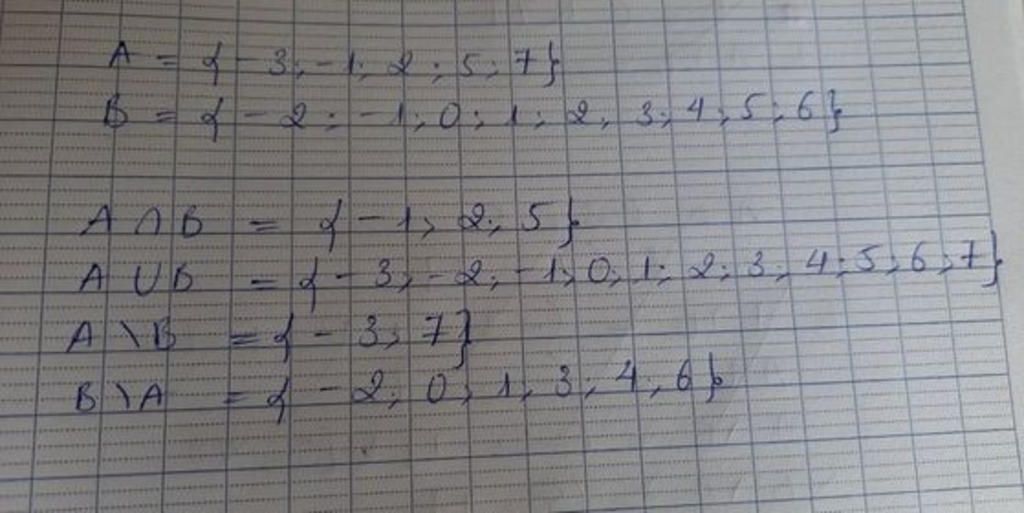 A = {-3; -1; 2; 5; 7}
B = {-2; -1; 0; 1; 2, 3; 4; 5; 6}
A ∩ B = {-1, 2; 5}
A ∪ B = {-3; -2; -1; 0; 1; 2; 3; 4; 5; 6; 7}
A \ B = {-3; 7}
B \ A = {-2; 0; 1; 3; 4; 6}